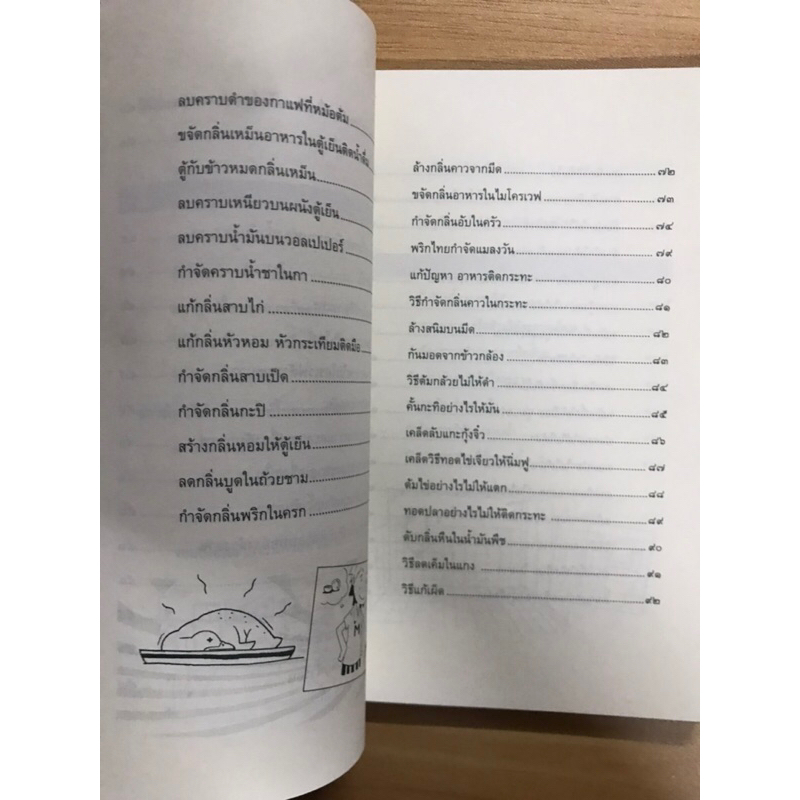 ลบคราบดำของกาแฟที่หม้อต้ม
ขจัดกลิ่นเหม็นอาหารในตู้เย็นติดน้ำดื่ม
ตู้กับข้าวหมดกลิ่นเหม็น
ลบคราบเหนียวบนผนังตู้เย็น
ลบคราบน้ำมันบนวอลเปเปอร์
กำจัดคราบน้ำชาในกา
แก้กลิ่นสาบไก่
แก้กลิ่นหัวหอม หัวกระเทียมติดมือ
กำจัดกลิ่นสาบเป็ด
กำจัดกลิ่นกะปิ
สร้างกลิ่นหอมให้ตู้เย็น
ลดกลิ่นบูดในถ้วยชาม
กำจัดกลิ่นพริกในครก
ล้างกลิ่นคาวจากมีด ๗๒
ขจัดกลิ่นอาหารในไมโครเวฟ ๗๓
กำจัดกลิ่นอับในครัว ๗๔
พริกไทยกำจัดแมลงวัน ๗๙
แก้ปัญหา อาหารติดกระทะ ๘๐
วิธีกำจัดกลิ่นคาวในกระทะ ๘๑
ล้างสนิมบนมีด ๘๒
กันมอดจากข้าวกล้อง ๘๓
วิธีต้มกล้วยไม่ให้ดำ ๘๔
คั้นกะทิอย่างไรให้มัน ๘๕
เคล็ดลับแกะกุ้งจิ๋ว ๘๖
เคล็ดวิธีทอดไข่เจียวให้นิ่มฟู ๘๗
ต้มไข่อย่างไรไม่ให้แตก ๘๘
ทอดปลาอย่างไรไม่ให้ติดกระทะ ๘๙
ดับกลิ่นหืนในน้ำมันพืช ๙๐
วิธีลดเค็มในแกง ๙๑
วิธีแก้เผ็ด ๙๒